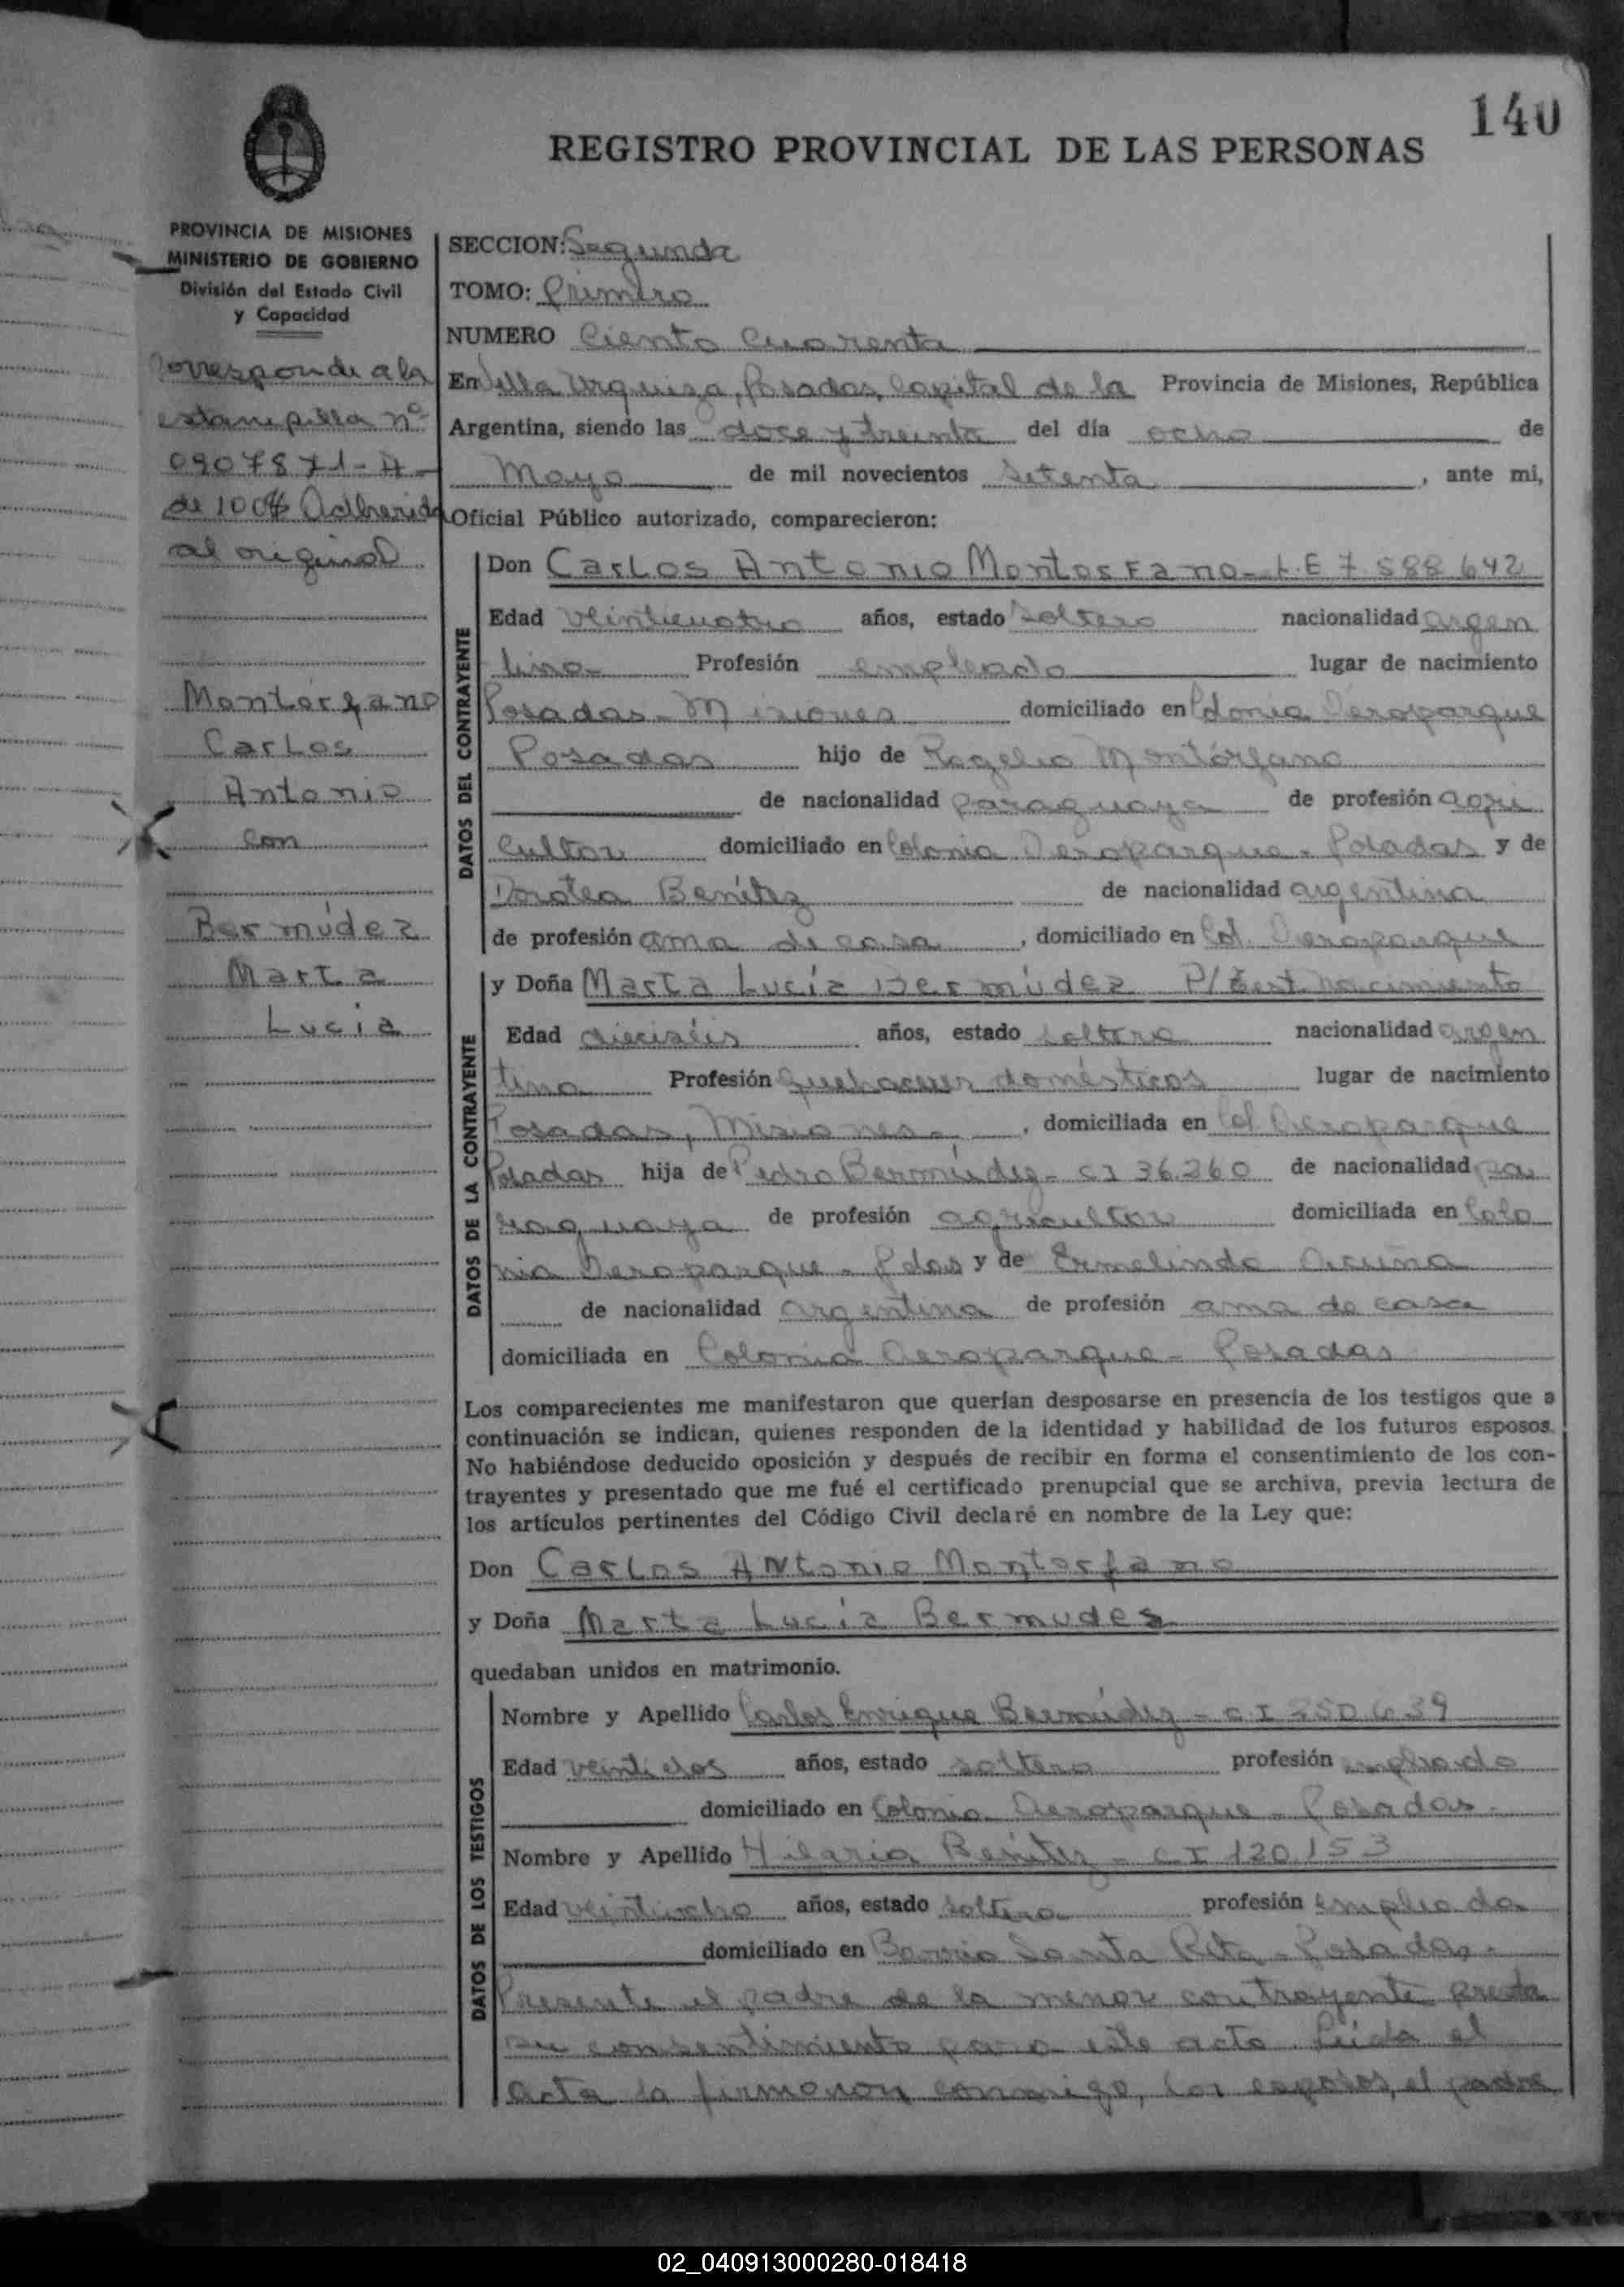 140
REGISTRO PROVINCIAL DE LAS PERSONAS
PROVINCIA DE MISIONES
MINISTERIO DE GOBIERNO
División del Estado Civil
y Capacidad
Corresponde a la
estampilla nº
0907871-A-
de 100$ Adherida
al original
Montórfano
Carlos
Antonio
con
Bermúdez
Marta
Lucía
SECCION: Segunda
TOMO: Primero
NUMERO Ciento Cuarenta
En Villa Urquiza, Posadas, Capital de la Provincia de Misiones, República
Argentina, siendo las doce y treinta del día ocho de
Mayo de mil novecientos setenta, ante mi,
Oficial Público autorizado, comparecieron:
DATOS DEL CONTRAYENTE
Don Carlos Antonio Montorfano - L.E 7 588 642
Edad veinticuatro años, estado soltero nacionalidad argen
tina- Profesión empleado lugar de nacimiento
Posadas - Misiones domiciliado en Colonia Aeroparque
Posadas hijo de Rogelio Montórfano
de nacionalidad paraguaya de profesión agri
cultor domiciliado en Colonia Aeroparque - Posadas y de
Dorotea Benítez de nacionalidad argentina
de profesión ama de casa, domiciliado en Col. Aeroparque
DATOS DE LA CONTRAYENTE
y Doña Marta Lucía Bermúdez P/Cert. nacimiento
Edad dieciséis años, estado soltera nacionalidad argen
tina Profesión quehaceres domésticos lugar de nacimiento
Posadas, Misiones-, domiciliada en Col Aeroparque
Posadas hija de Pedro Bermúdez - CI 36.260 de nacionalidad pa
raguaya de profesión agricultor domiciliada en Colo
nia Aeroparque - Pdas y de Ermelinda Acuña
de nacionalidad argentina de profesión ama de casa
domiciliada en Colonia Aeroparque - Posadas
Los comparecientes me manifestaron que querían desposarse en presencia de los testigos que a
continuación se indican, quienes responden de la identidad y habilidad de los futuros esposos.
No habiéndose deducido oposición y después de recibir en forma el consentimiento de los con-
trayentes y presentado que me fué el certificado prenupcial que se archiva, previa lectura de
los artículos pertinentes del Código Civil declaré en nombre de la Ley que:
Don Carlos Antonio Montorfano
y Doña Marta Lucía Bermudes
quedaban unidos en matrimonio.
DATOS DE LOS TESTIGOS
Nombre y Apellido Carlos Enrique Bermúdez - C.I 250 639
Edad veintidos años, estado soltero profesión empleado
domiciliado en Colonia Aeroparque - Posadas.
Nombre y Apellido Hilaria Benítez - CI 120.153
Edad veintiocho años, estado soltera profesión empleada
domiciliado en Barrio Santa Rita - Posadas.
Presente el padre de la menor contrayente presta
su consentimiento para este acto. Leída el
acta la firmaron conmigo, los esposos, el padre
02_040913000280-018418